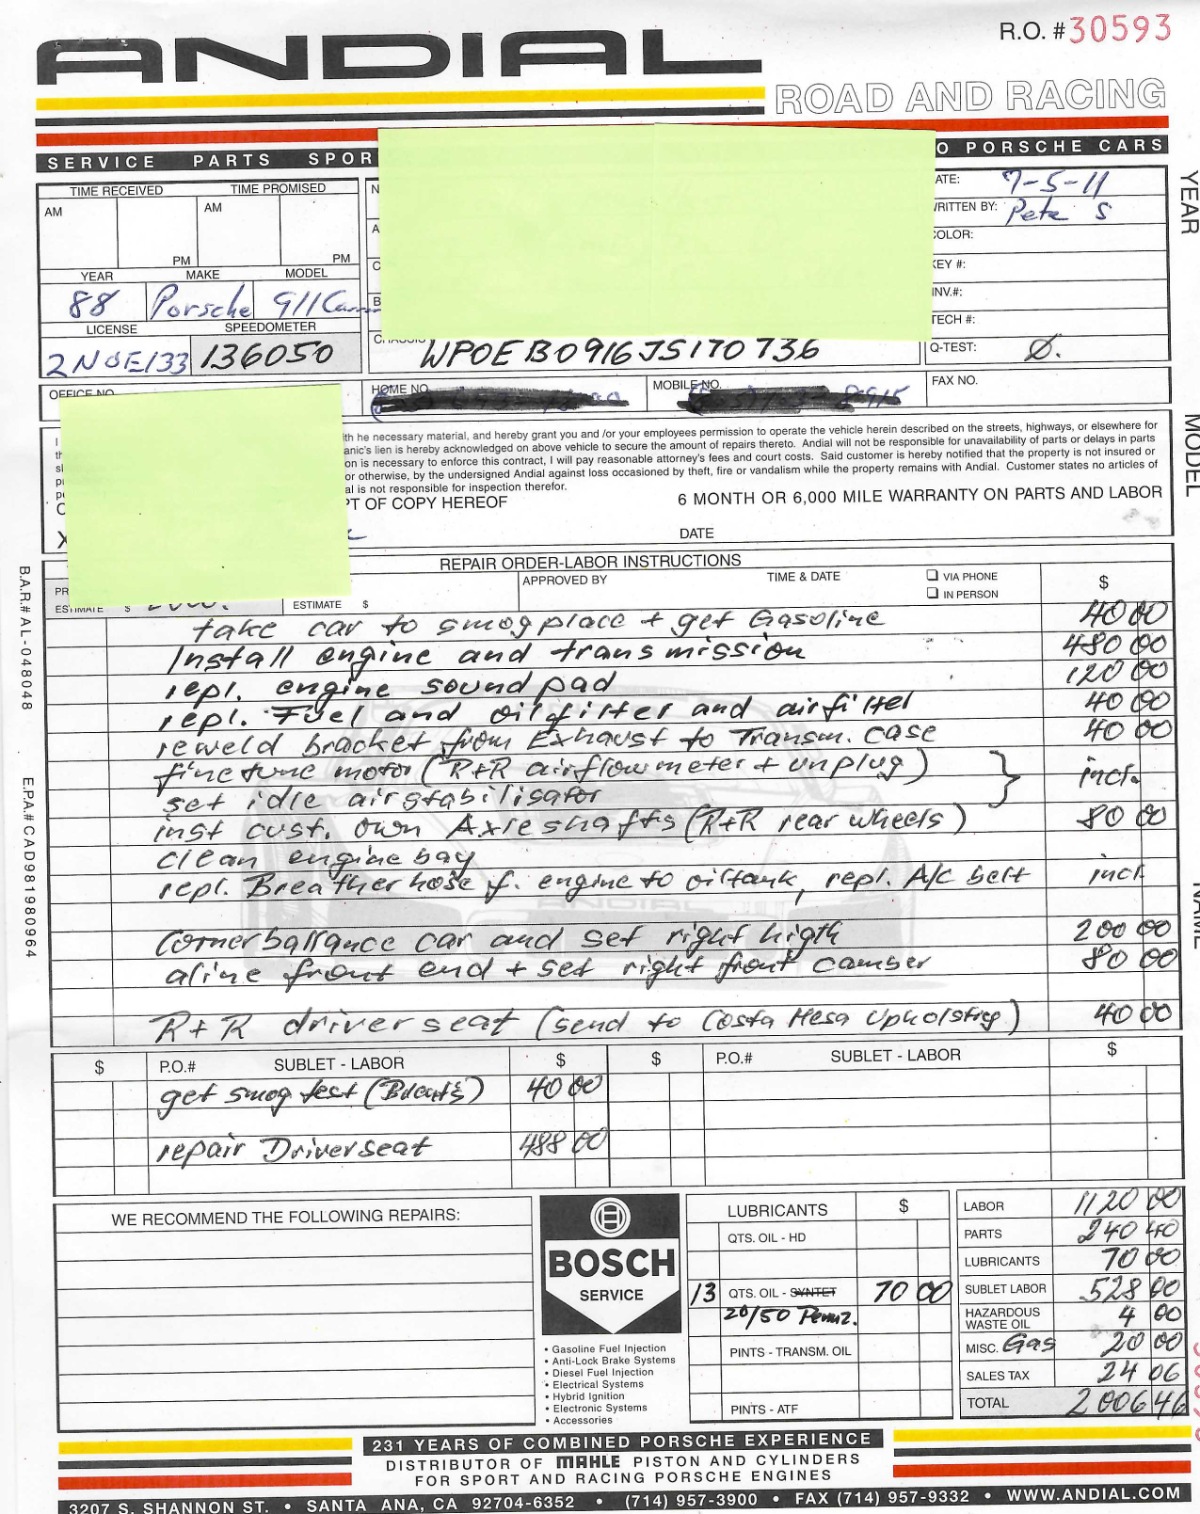 R.O. # 30593
ANDIAL
ROAD AND RACING
SERVICE PARTS SPOR
O PORSCHE CARS
TIME RECEIVED
TIME PROMISED
AM
AM
PM
PM
N
A
C
B
ATE: 7-5-11
WRITTEN BY: Pete S
COLOR:
KEY #:
INV.#:
TECH #:
Q-TEST: Ø.
YEAR MAKE MODEL
88 Porsche 911 Carr
LICENSE SPEEDOMETER
2NOE133 136050
CHASSIS WPOEB0916JS170736
OFFICE NO.
HOME NO.
MOBILE NO.
FAX NO.
th he necessary material, and hereby grant you and /or your employees permission to operate the vehicle herein described on the streets, highways, or elsewhere for
anic's lien is hereby acknowledged on above vehicle to secure the amount of repairs thereto. Andial will not be responsible for unavailability of parts or delays in parts
on is necessary to enforce this contract, I will pay reasonable attorney's fees and court costs. Said customer is hereby notified that the property is not insured or
or otherwise, by the undersigned Andial against loss occasioned by theft, fire or vandalism while the property remains with Andial. Customer states no articles of
al is not responsible for inspection therefor.
PT OF COPY HEREOF
6 MONTH OR 6,000 MILE WARRANTY ON PARTS AND LABOR
X
DATE
REPAIR ORDER-LABOR INSTRUCTIONS
PR
ESTIMATE $
ESTIMATE $
APPROVED BY
TIME & DATE
VIA PHONE
IN PERSON
$
take car to smogplace + get Gasoline 40 00
Install engine and transmission 480 00
repl. engine sound pad 120 00
repl. Fuel and oilfilter and airfilter 40 00
reweld bracket from Exhaust to Transm. case 40 00
finetune motor (R+R airflowmeter + unplug) incl.
set idle airstabilisator
inst cust. own Axleshafts (R+R rear wheels) 80 00
clean engine bay
repl. Breatherhose f. engine to oiltank, repl. A/c belt incl
Cornerballance car and set right higth 200 00
aline front end + set right front camber 80 00
R+R driverseat (send to Costa Mesa Upholstrey) 40 00
$ P.O.# SUBLET - LABOR $
$ P.O.# SUBLET - LABOR $
get smog test 40 00
repair Driverseat 488 00
WE RECOMMEND THE FOLLOWING REPAIRS:
BOSCH
SERVICE
• Gasoline Fuel Injection
• Anti-Lock Brake Systems
• Diesel Fuel Injection
• Electrical Systems
• Hybrid Ignition
• Electronic Systems
• Accessories
LUBRICANTS $
QTS. OIL - HD
13 QTS. OIL - SYNTET 70 00
20/50 Pennz.
PINTS - TRANSM. OIL
PINTS - ATF
LABOR 1120 00
PARTS 240 40
LUBRICANTS 70 00
SUBLET LABOR 528 00
HAZARDOUS
WASTE OIL 4 00
MISC. Gas 20 00
SALES TAX 24 06
TOTAL 2006 46
231 YEARS OF COMBINED PORSCHE EXPERIENCE
DISTRIBUTOR OF MAHLE PISTON AND CYLINDERS
FOR SPORT AND RACING PORSCHE ENGINES
3207 S. SHANNON ST. • SANTA ANA, CA 92704-6352 • (714) 957-3900 • FAX (714) 957-9332 • WWW.ANDIAL.COM
B.A.R.# AL-048048
E.P.A.# CAD981980964
YEAR
MODEL
NAME